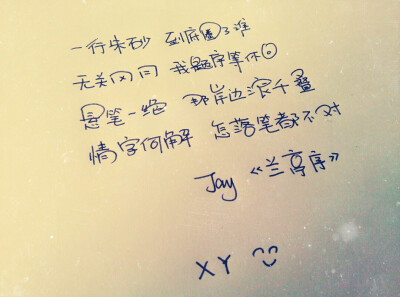 一行朱砂 到底圈了谁
无关风月 我题序等你回
悬笔一绝 那岸边浪千叠
情字何解 怎落笔都不对
Jay 《兰亭序》
XY